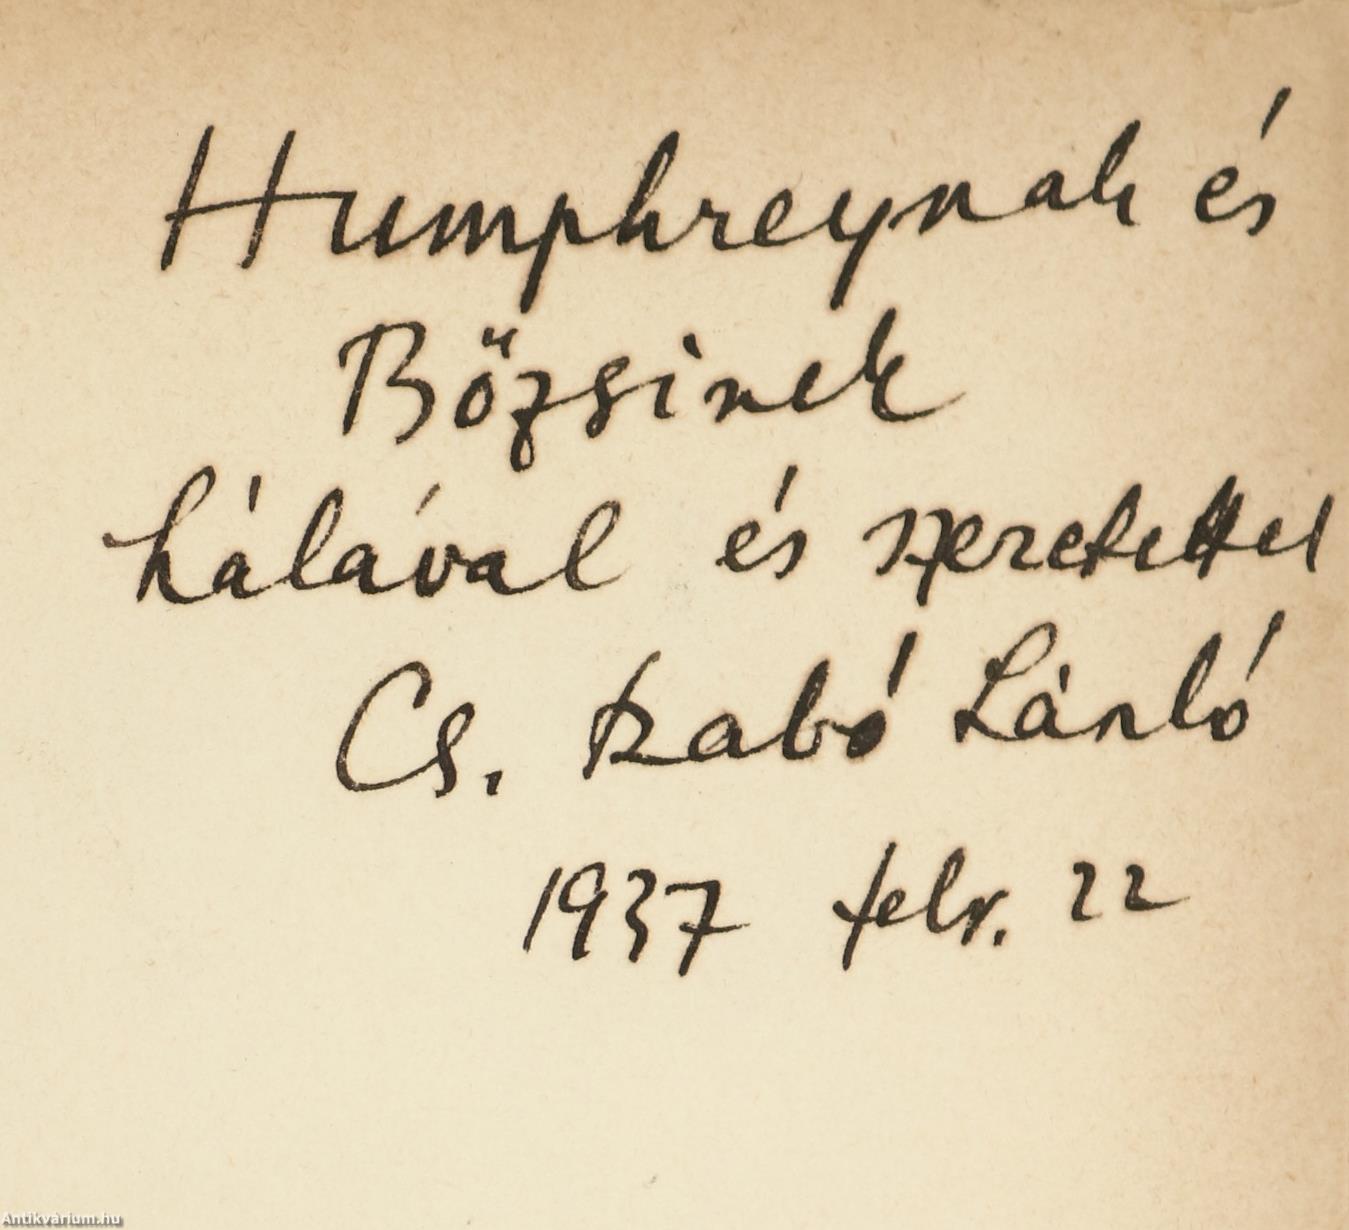 Humphreynak és
Bőzsinek
hálával és szeretettel
Cs. Szabó László
1937 febr. 22
Antikvárium.hu